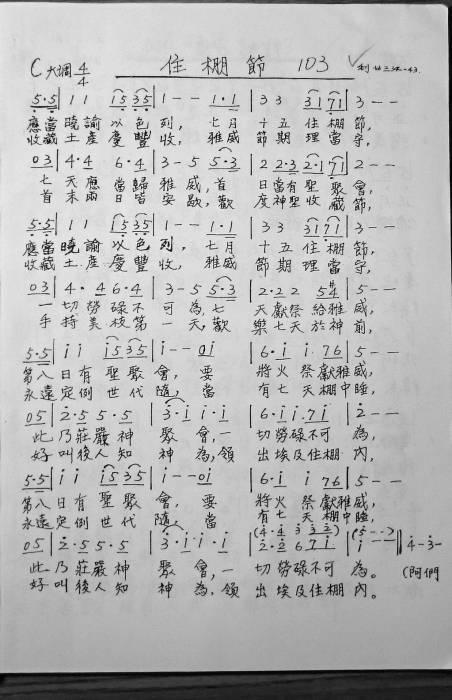 C大調 4/4 住棚節 103 ✓ 利廿三34-43
5·5 | 1 1 15 35 | 1 - - 1·1 | 3 3 31 71 | 3 - -
應當曉諭以色列, 七月十五住棚節,
收藏土產慶豐收, 雅威節期理當守,
03 | 4·4 6·4 | 3 - 5 5·3 | 2 2·3 2·1 71 | 2 - -
七天應當歸雅威, 首日當有聖聚會,
首末兩日皆安歇, 歡度神聖收藏節,
5·5 | 1 1 15 35 | 1 - - 1·1 | 3 3 31 71 | 3 - -
應當曉諭以色列, 七月十五住棚節,
收藏土產慶豐收, 雅威節期理當守,
03 | 4·4 6·4 | 3 - 5 5·3 | 2·2 2 5#4 | 5 - -
一切勞碌不可為, 七天獻祭給雅威,
手持美枝第一天, 歡樂七天於神前,
5·5 | i i i5 35 | i - - 0i | 6·i i·76 | 5 - -
第八日有聖聚會, 要將火祭獻雅威,
永遠定例世代隨, 當有七天棚中睡,
05 | 2·5 5·5 | 3·i i·i | 6·i i·7i | 2 - -
此乃莊嚴神聚會, 一切勞碌不可為,
好叫後人知神為, 領出埃及住棚內,
5·5 | i i i5 35 | i - - 0i | 6·i i 76 | 5 - -
第八日有聖聚會, 要將火祭獻雅威,
永遠定例世代隨, 當有七天棚中睡,
(4·4 3 33 | (5 - -)
05 | 2·5 5·5 | 3·i i·i | 2·2 6 7i | i - - ‖ 4 - 3 -
此乃莊嚴神聚會, 一切勞碌不可為。 (阿們
好叫後人知神為, 領出埃及住棚內。